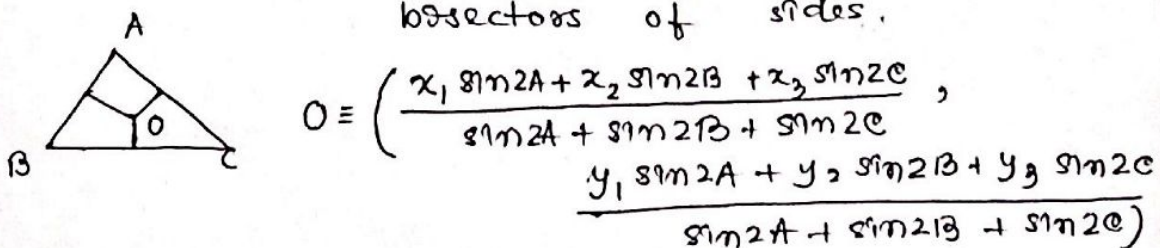 bisectors of sides.
A
B
C
O
O ≡ ( x₁ sin2A + x₂ sin2B + x₃ sin2C / sin2A + sin2B + sin2C ,
y₁ sin2A + y₂ sin2B + y₃ sin2C / sin2A + sin2B + sin2C )